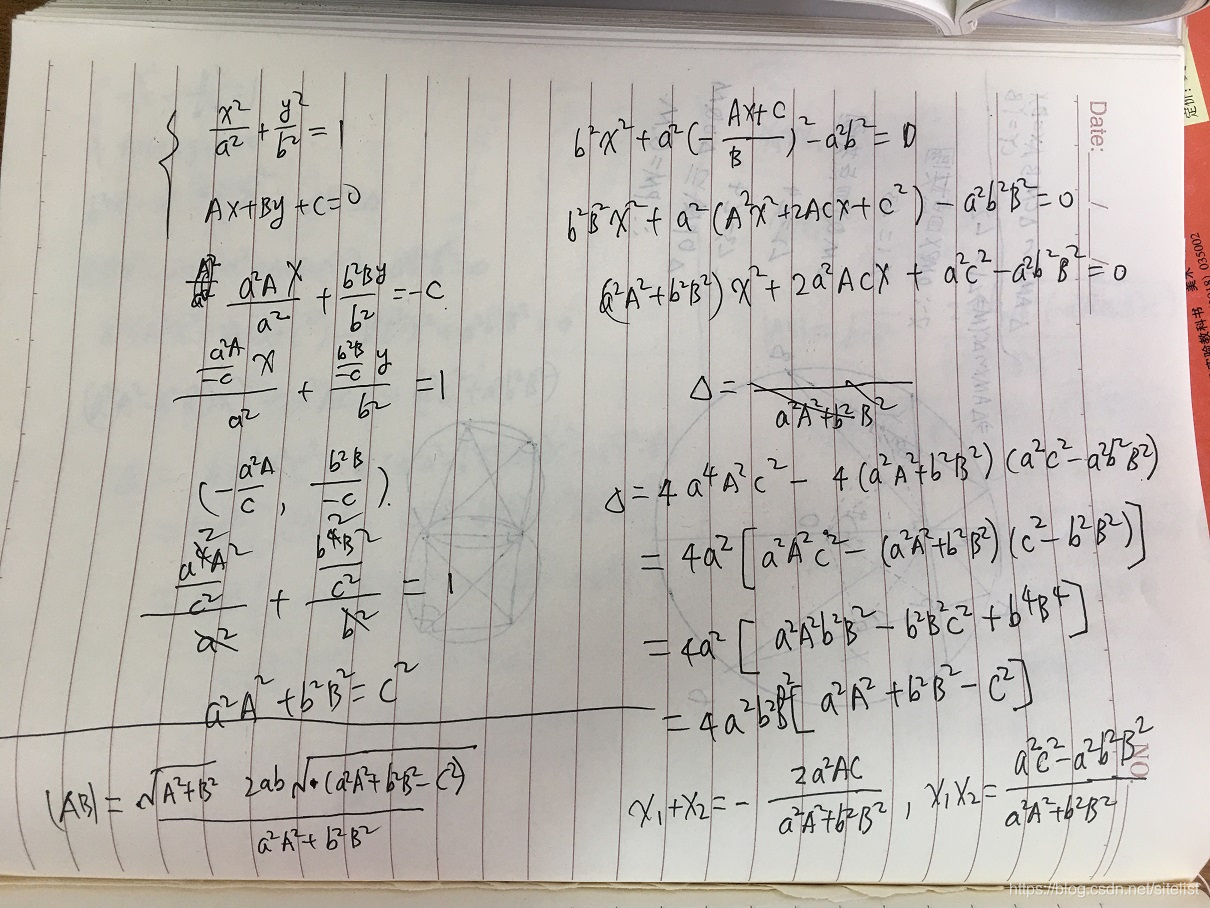 x²/a² + y²/b² = 1
Ax+By+C=0
a²Ax/a² + b²By/b² = -C
(a²A/-C)x/a² + (b²B/-C)y/b² = 1
(-a²A/C, b²B/-C)
(a²A²/C²) + (b²B²/C²) = 1
a²A²+b²B²=C²
|AB| = √(A²+B²) 2ab√(a²A²+b²B²-C²) / (a²A²+b²B²)
b²x²+a²(-(Ax+C)/B)²-a²b²=0
b²B²x²+a²(A²x²+2ACx+C²)-a²b²B²=0
(a²A²+b²B²)x²+2a²ACx+a²C²-a²b²B²=0
Δ= /(a²A²+b²B²)
Δ=4a⁴A²C²-4(a²A²+b²B²)(a²C²-a²b²B²)
=4a²[a²A²C²-(a²A²+b²B²)(C²-b²B²)]
=4a²[a²A²b²B²-b²B²C²+b⁴B⁴]
=4a²b²B²[a²A²+b²B²-C²]
x₁+x₂=-2a²AC/(a²A²+b²B²), x₁x₂=(a²C²-a²b²B²)/(a²A²+b²B²)
Date:
NO.
定价:
美术
035002
https://blog.csdn.net/sitelist